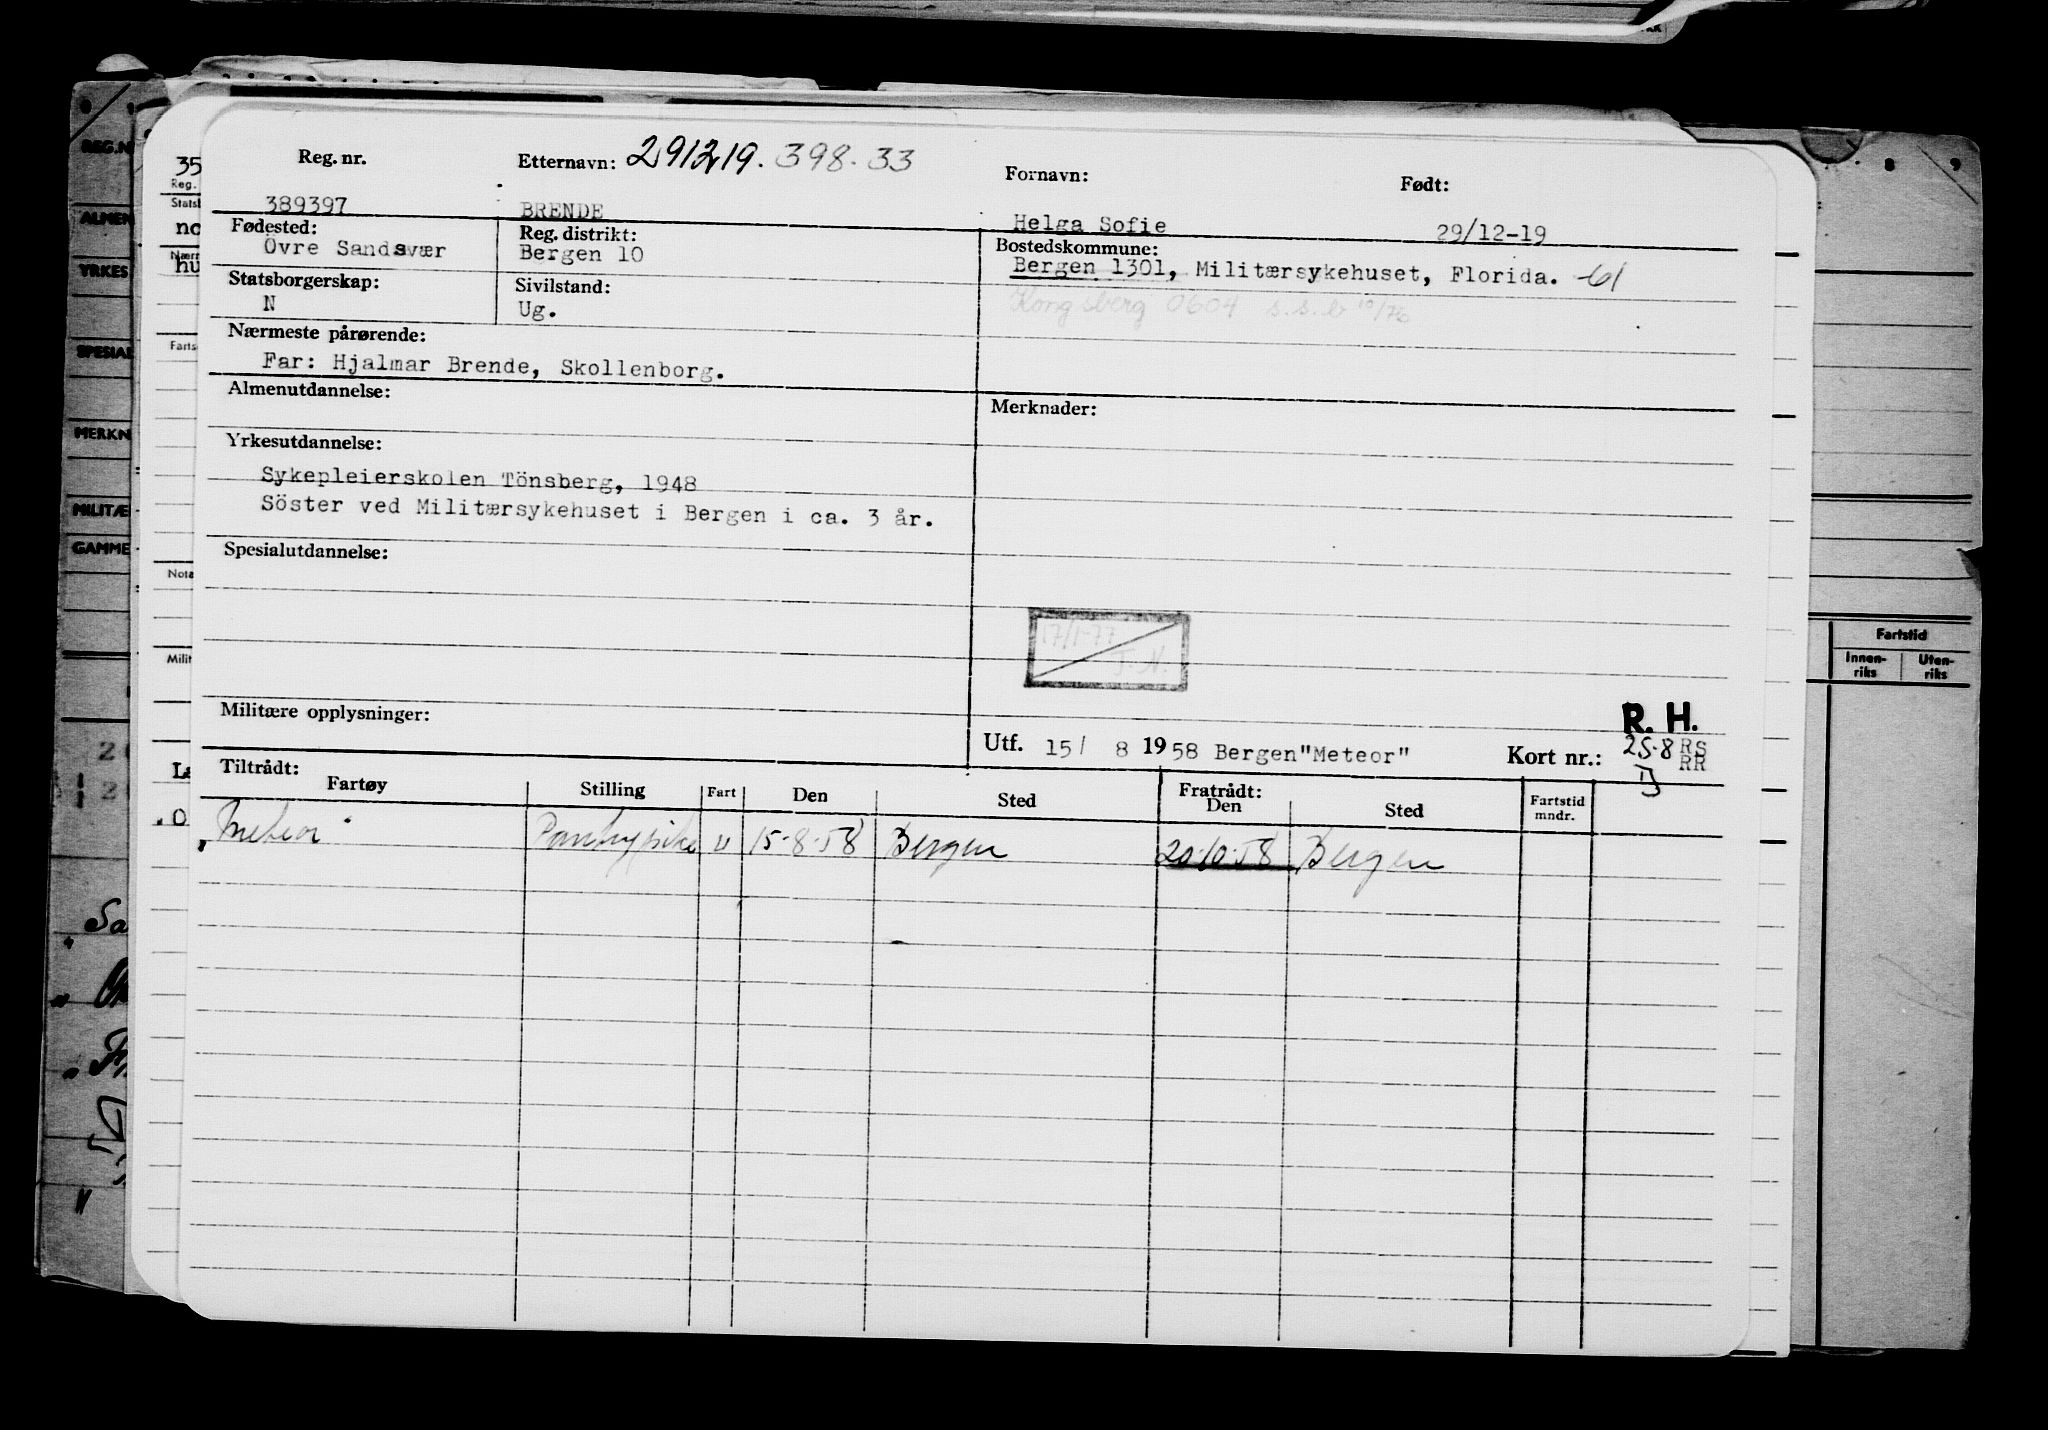 Reg. nr. Etternavn: 291219. 398.33 Fornavn: Født:
389397 BRENDE Helga Sofie 29/12-19
Fødested: Reg. distrikt: Bostedskommune:
Övre Sandsvær Bergen 10 Bergen 1301, Militærsykehuset, Florida. -61
Statsborgerskap: Sivilstand: Kongsberg 0604 s.s.b 10/76
N Ug.
Nærmeste pårørende:
Far: Hjalmar Brende, Skollenborg.
Almenutdannelse: Merknader:
Yrkesutdannelse:
Sykepleierskolen Tönsberg, 1948
Söster ved Militærsykehuset i Bergen i ca. 3 år.
Spesialutdannelse:
17/1-77
J. N.
Militære opplysninger: R. H.
Utf. 15/ 8 1958 Bergen "Meteor" Kort nr.: 25-8 RS
RR
Tiltrådt: Fratrådt:
Fartøy Stilling Fart Den Sted Den Sted Fartstid mndr.
"Meteor" Pantrypike u 15-8-58 Bergen 20-10-58 Bergen
35
Reg.
no
hu
Farts
Nota
Milit
REG.N
ALMEN
YRKES
SPESIAL
MERKN
MILITÆ
GAMME
Sa
8 9
Fartstid
Innen-riks Uten-riks